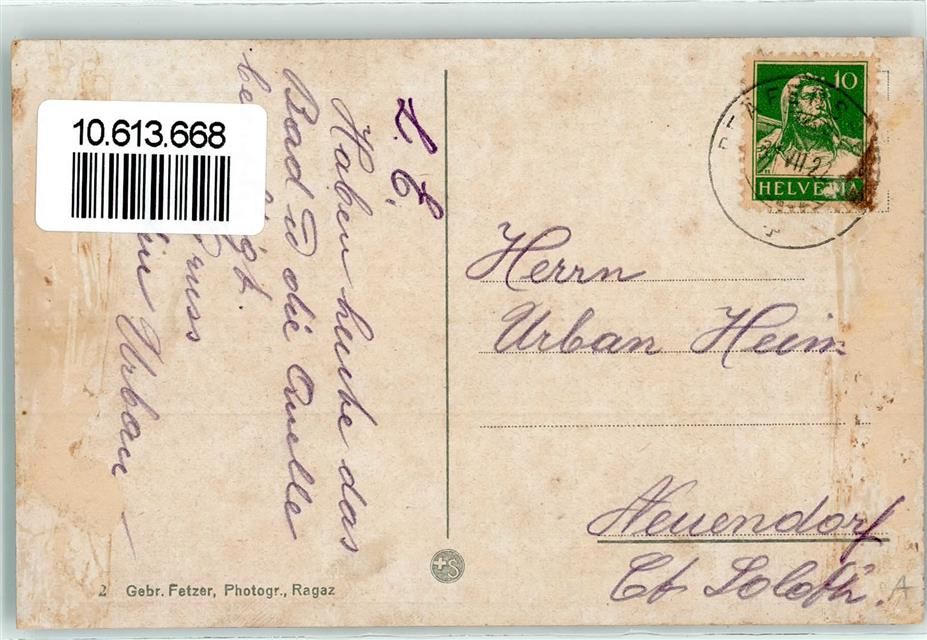 10.613.668
L. E.
Haben heute das
Bad u die Quelle
be
gt.
Gruss
Urban
10
HELVETIA
VII
Herrn
Urban Heim
Neuendorf
Ct Soloth.
2 Gebr. Fetzer, Photogr., Ragaz
+S
A